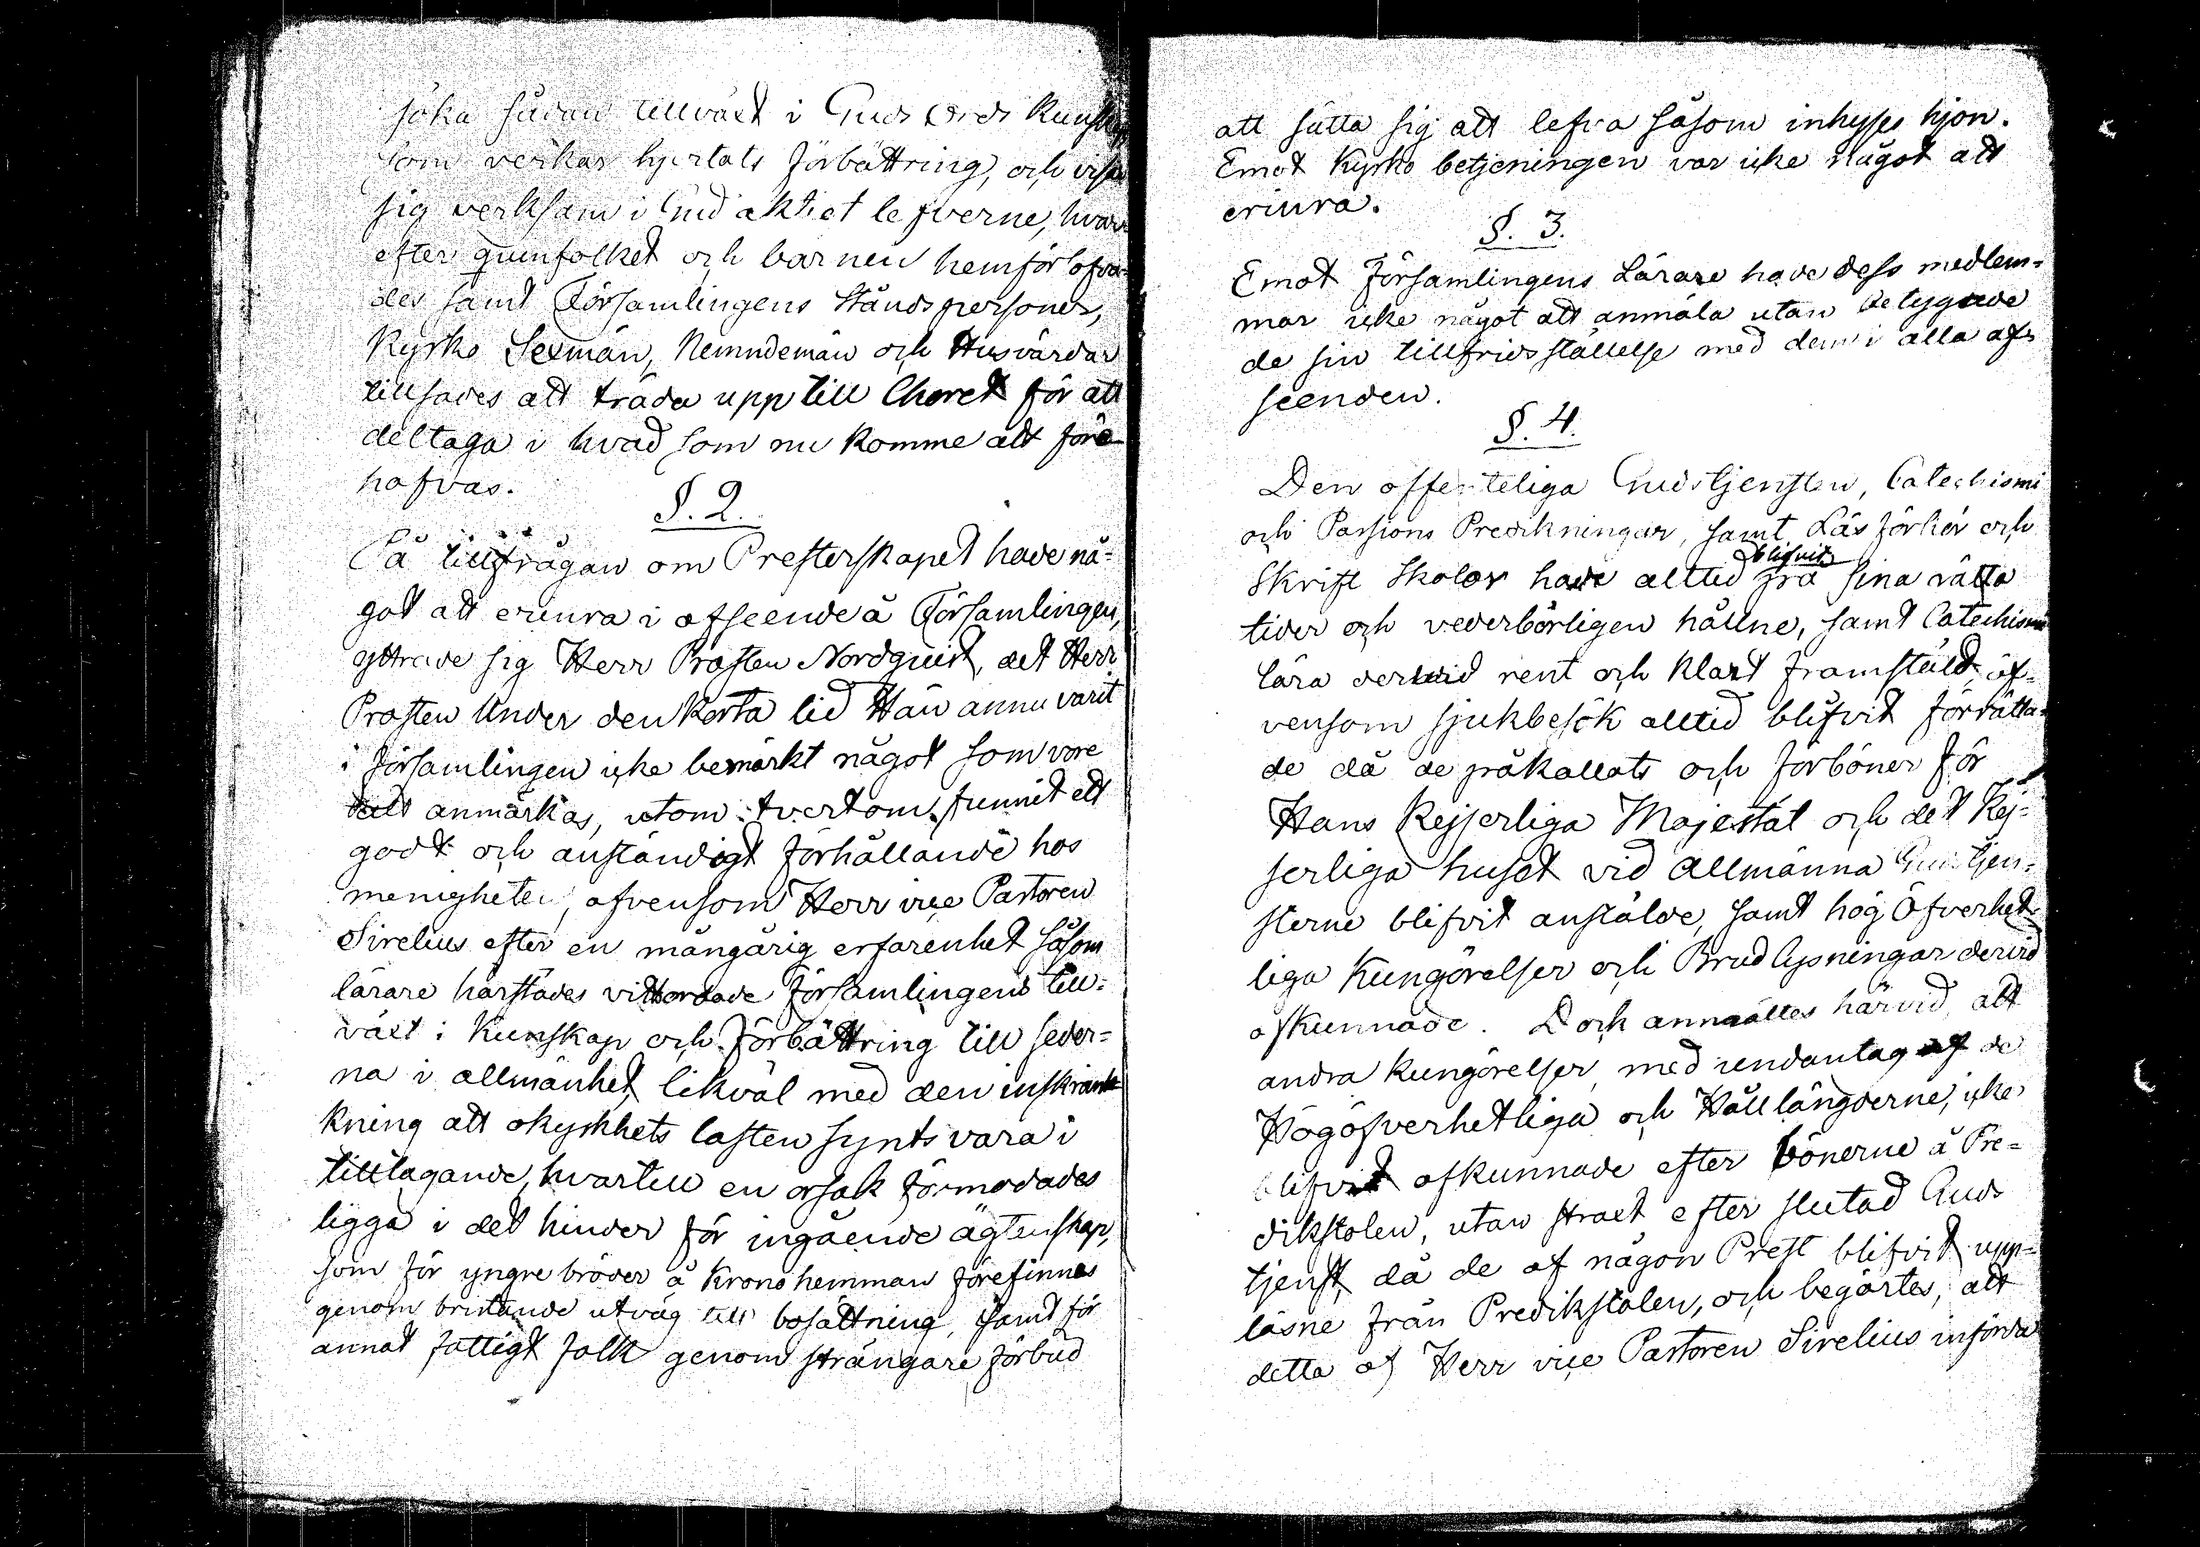 söka sådan tillväxt i Guds Ords kunskap
som verkar hjertats förbättring, och visar
sig verksam i Gud aktigt lefverne, hvar
efter qvinfolket och barnen hemförlofva-
des samt Församlingens Ståndspersoner,
Kyrko Sexmän, Nemndemän och Husvärdar
tillsades att träda upp till Choret för att
deltaga i hvad som nu komme att före
hafvas.
§. 2.
På tillfrågan om Presterskapet hade nå-
got att erinra i afseende å Församlingen,
yttrade sig Herr Prosten Nordquist, det Herr
Prosten Under den korta tid Han ännu varit
i församlingen icke bemärkt något som vore
att anmärkas, utom tvertom funnit ett
godt och anständigt förhållande hos
menigheten, äfvensom Herr vice Pastoren
Sirelius efter en mångårig erfarenhet såsom
lärare härstädes vittordade församlingens till-
växt i kunskap och förbättring till seder-
na i allmänhet, likväl med den inskränk
kning att okyskhets lasten synts vara i
tilltagande, hvartill en orsak förmodades
ligga i det hinder för ingående ägtenskap,
som för yngre bröder å Krono hemman förefinnes
genom bristande utväg till bosättning, samt för
annat fattigt folk genom strängare förbud
att sätta sig att lefva såsom inhyses hjon.
Emot Kyrko betjeningen var icke något att
erinra.
§. 3.
Emot församlingens Lärare hade dess medlem-
mar icke något att anmäla utan betygade
de sin tillfridsställelse med dem i alla af-
seenden.
§. 4.
Den offenteliga Gudstjensten, Catechismi
och Passions Predikningar, samt Läs förhör och
blifvit
Skrift Skolor hade alltid på sina rätta
tider och vederbörligen hållne, samt Catechismi
lära dervid rent och klart framstäld, äf-
vensom sjukbesök alltid blifvit förrätta-
de då de påkallats och förböner för
Hans Kejserliga Majestät och det Kej-
serliga huset vid allmänna Gudstjen-
sterne blifvit anstälde, samt hög Öfverhet-
liga Kungörelser och Brud lysningar dervid
afkunnade. Dock anmältes härvid, att
andra kungörelser med undantag af de
Högöfverhetliga och Hålllängderne, icke
blifvit afkunnade efter bönerne å Pre-
dikstolen, utan straxt efter slutad Guds
tjenst, då de af någon Prest blifvit upp-
läsne från Predikstolen, och begärtes, att
detta af Herr vice Pastoren Sirelius införda